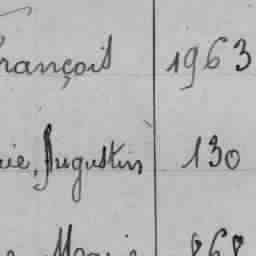 rançois 1963
rie, Augustin 130
Marie 868